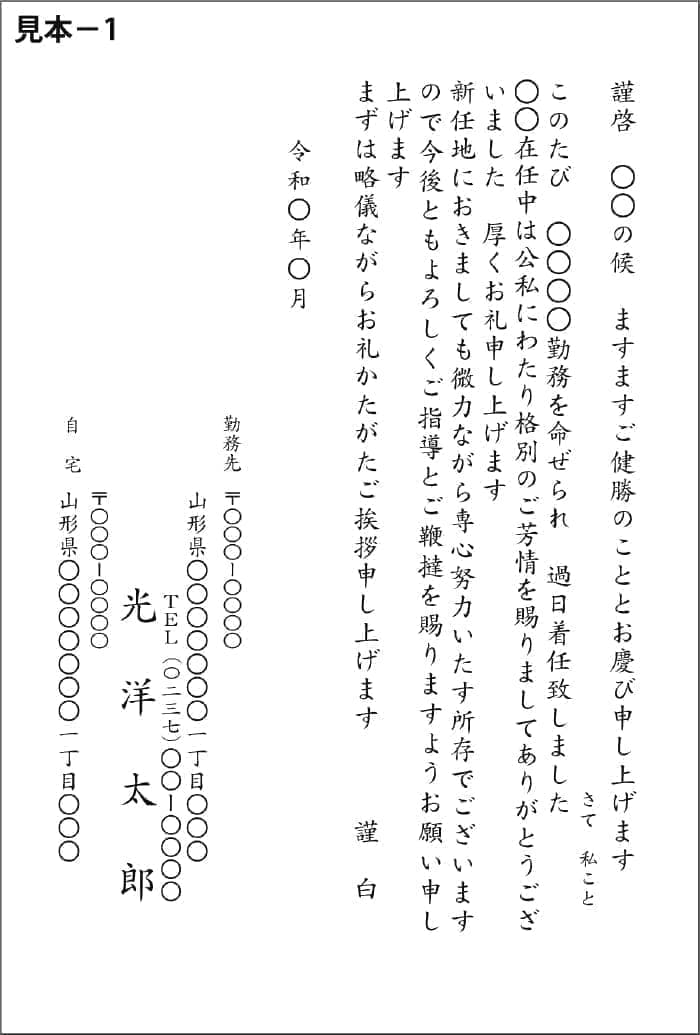 見本－1
謹啓　〇〇の候　ますますご健勝のこととお慶び申し上げます
さて　私こと
このたび　〇〇〇〇勤務を命ぜられ　過日着任致しました
〇〇在任中は公私にわたり格別のご芳情を賜りましてありがとうござ
いました　厚くお礼申し上げます
新任地におきましても微力ながら専心努力いたす所存でございます
ので今後ともよろしくご指導とご鞭撻を賜りますようお願い申し
上げます
まずは略儀ながらお礼かたがたご挨拶申し上げます　　謹　白
令和〇年〇月
勤務先　〒〇〇〇－〇〇〇〇
山形県〇〇〇〇〇〇〇一丁目〇〇〇
TEL（〇二三七）〇〇－〇〇〇〇
光　洋　太　郎
〒〇〇〇－〇〇〇〇
自　宅　山形県〇〇〇〇〇〇〇一丁目〇〇〇